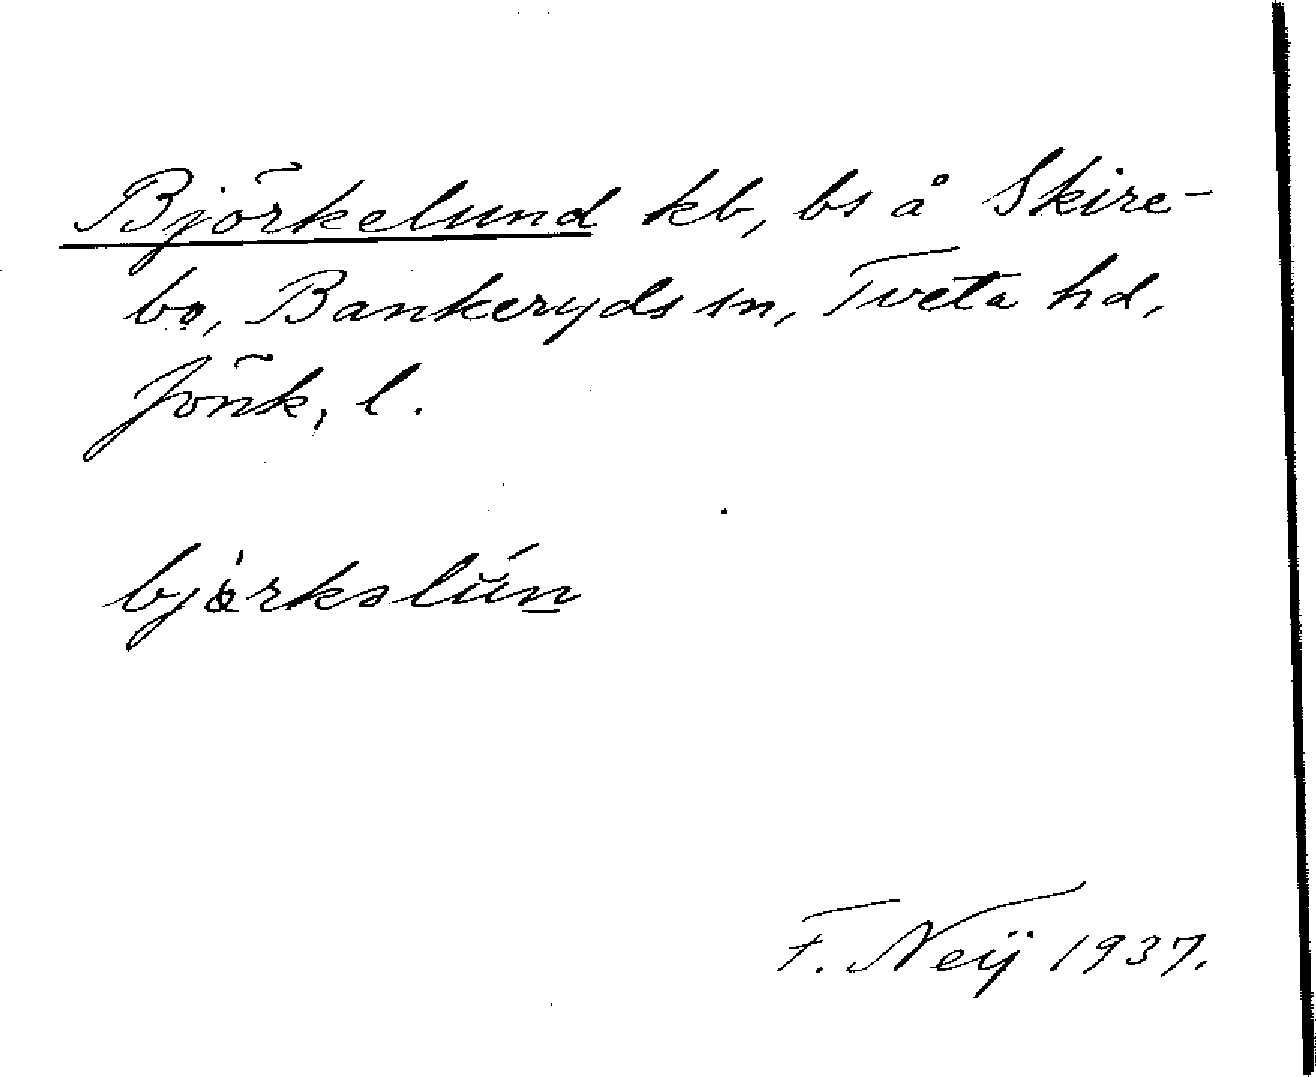 Björkelund kb, bs å Skire-
bo, Bankeryds sn, Tveta hd,
Jönk. l.
bjàrkəlún
F. Neij 1937.